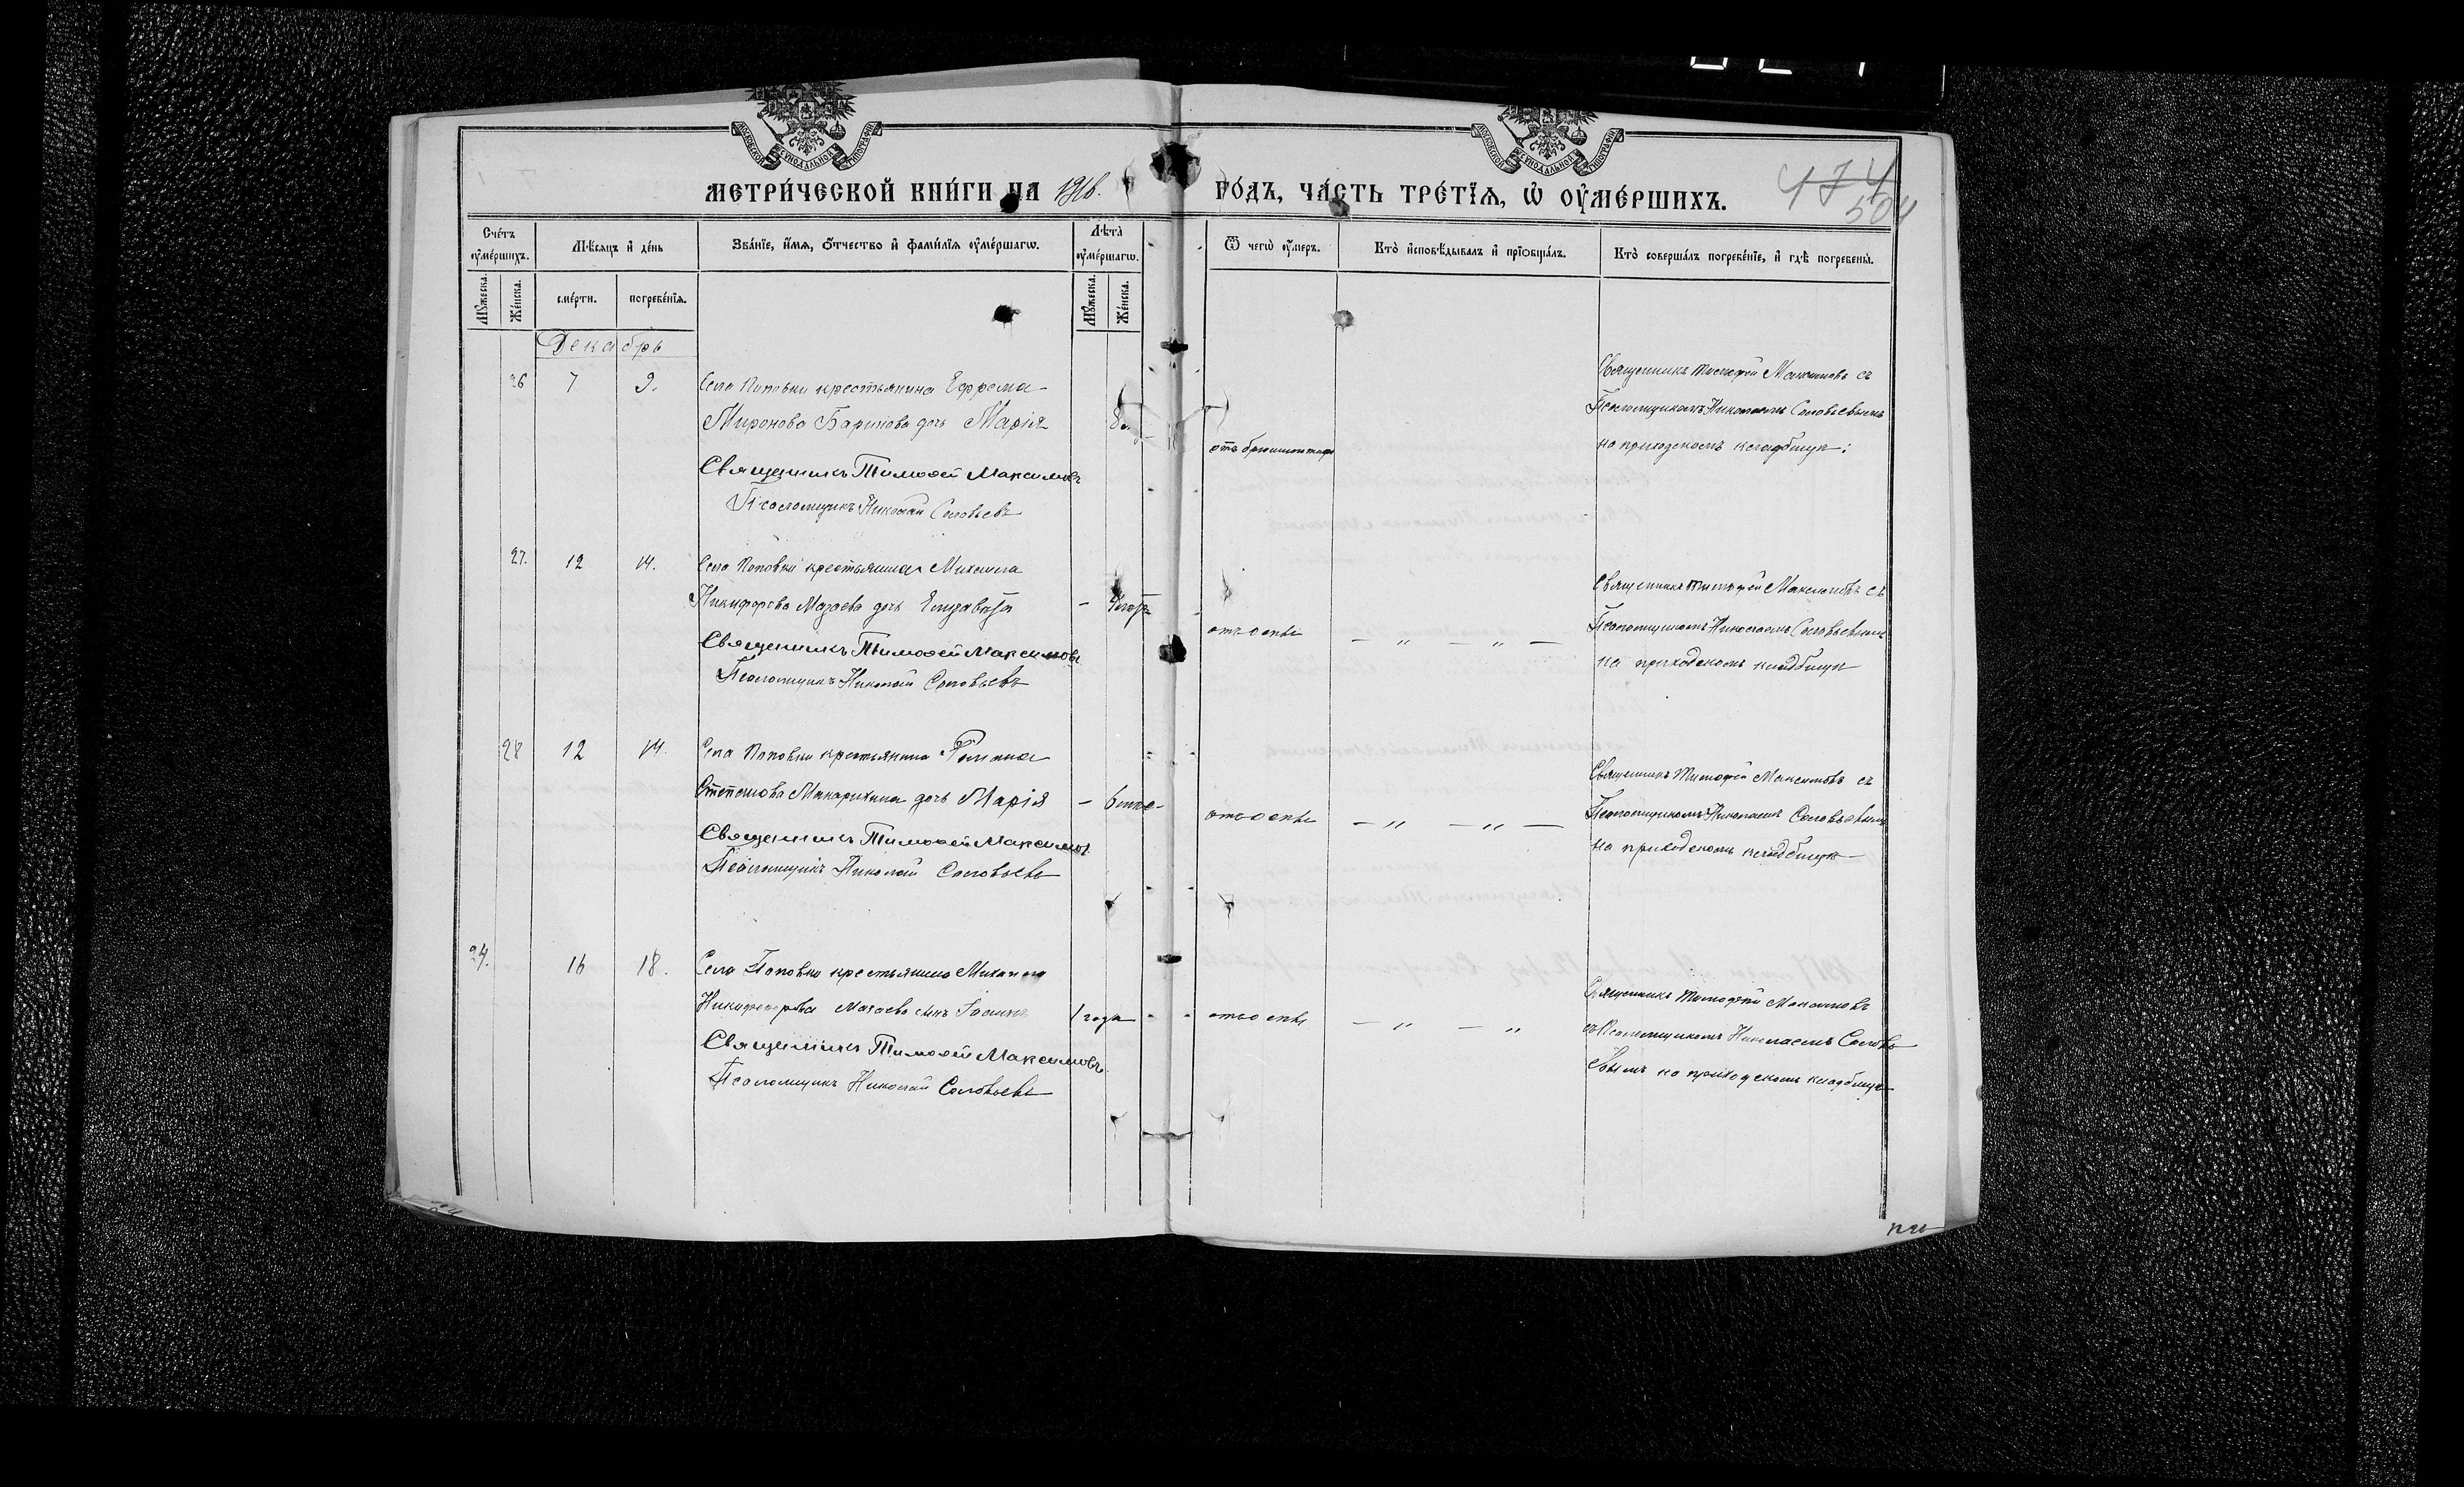 МОСКОВСКОЙ СѴНОДАЛЬНОЙ ТИПОГРАФІИ
МОСКОВСКОЙ СѴНОДАЛЬНОЙ ТИПОГРАФІИ
МЕТРИ́ЧЕСКОЙ КНИ́ГИ НА 1916. ГО́ДЪ, ЧА́СТЬ ТРЕ́ТЇѦ, Ѽ ОУ҆МЕ́РШИХЪ.
474
504
Сче́тъ оу҆ме́ршихъ.
Мѣ́сѧцъ и҆ де́нь
Зва́нїе, и҆́мѧ, ѻ҆́тчество и҆ фами́лїѧ оу҆ме́ршагѡ.
Лѣ́та̀ оу҆ме́ршагѡ.
Ѿ чегѡ̀ оу҆́меръ.
Кто̀ и҆сповѣ́дывалъ и҆ прїѡбща́лъ.
Кто̀ соверша́лъ погребе́нїе, и҆ гдѣ̀ погребены̀.
Мꙋ́жеска.
Же́нска.
сме́рти.
погребе́нїѧ.
Мꙋ́жеска.
Же́нска.
Декабрь
26 7 9.
Села Поповки крестьянина Ефрема
Миронова Баринова дочь Марія
Священникъ Тимоѳей Максимовъ
Псаломщикъ Николай Соловьевъ
Священникъ Тимофей Максимовъ съ
Псаломщикомъ Николаемъ Соловьевымъ
на приходскомъ кладбищѣ
27. 12 14.
Села Поповки крестьянина Михаила
Никифорова Мазаева дочь Елизавета
Священникъ Тимоѳей Максимовъ
Псаломщикъ Николай Соловьевъ
отъ оспы — „ — „ —
Священникъ Тимофей Максимовъ съ
Псаломщикомъ Николаемъ Соловьевымъ
на приходскомъ кладбищѣ
28 12 14.
Села Поповки крестьянина Романа
Степанова Макарихина дочь Марія
Священникъ Тимоѳей Максимовъ
Псаломщикъ Николай Соловьевъ
отъ оспы — „ — „ —
Священникъ Тимофей Максимовъ съ
Псаломщикомъ Николаемъ Соловьевымъ
на приходскомъ кладбищѣ
24. 16 18.
Села Поповки крестьянина Михаила
Никифорова Мазаева сынъ
1 года
Священникъ Тимоѳей Максимовъ
Псаломщикъ Николай Соловьевъ
отъ оспы — „ — „
Священникъ Тимофей Максимовъ
съ Псаломщикомъ Николаемъ Соловь
евымъ на приходскомъ кладбищѣ